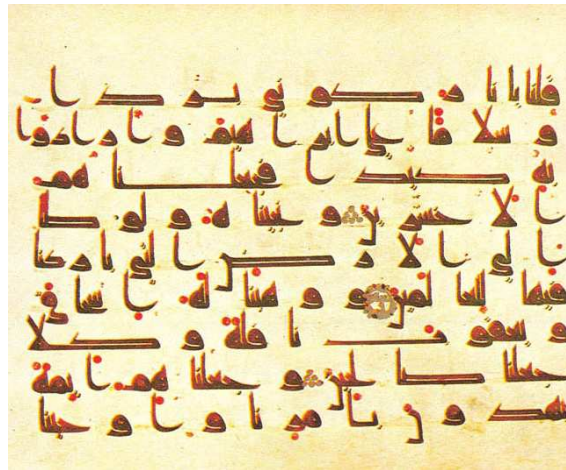 قلنا يا نار كوني بردا
وسلاما على ابرهيم وارادوا
به كيدا فجعلناهم
الاخسرين ونجيناه ولوطا
الى الارض التي باركنا
فيها للعالمين ووهبنا له اسحاق
ويعقوب نافلة وكلا
جعلنا صالحين وجعلناهم ائمة
يهدون بامرنا واوحينا